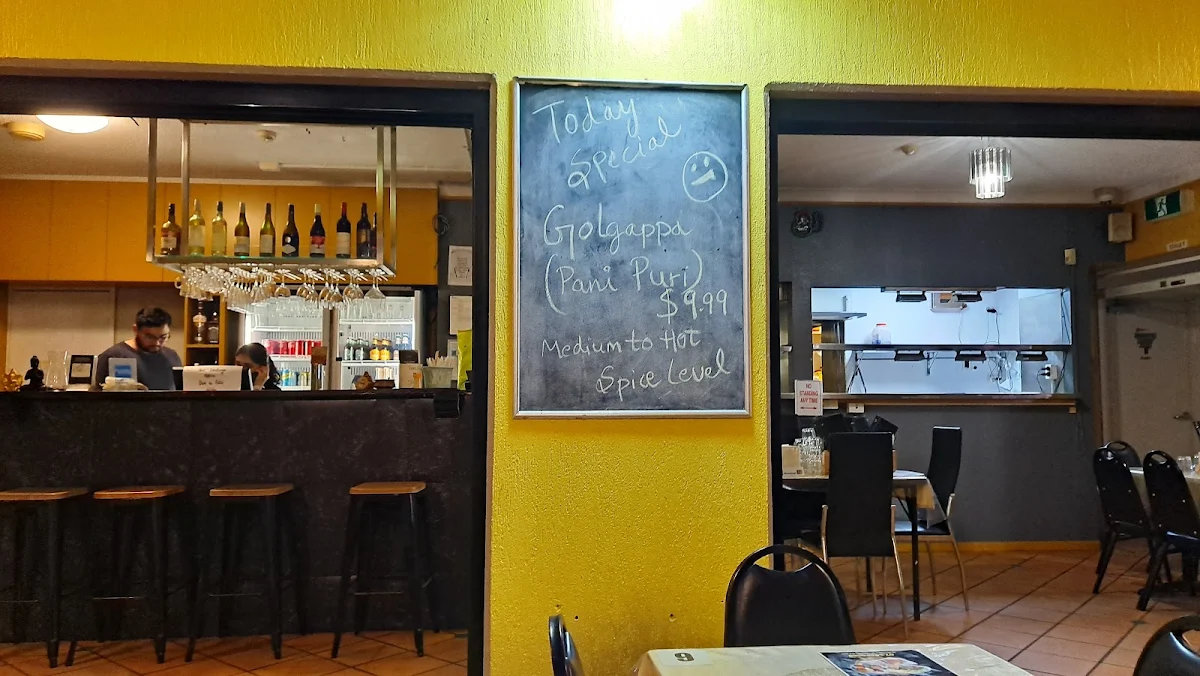 Today
Special
Golgappa
(Pani Puri)
$9.99
Medium to Hot
Spice Level
NO
STANDING
ANY TIME
9